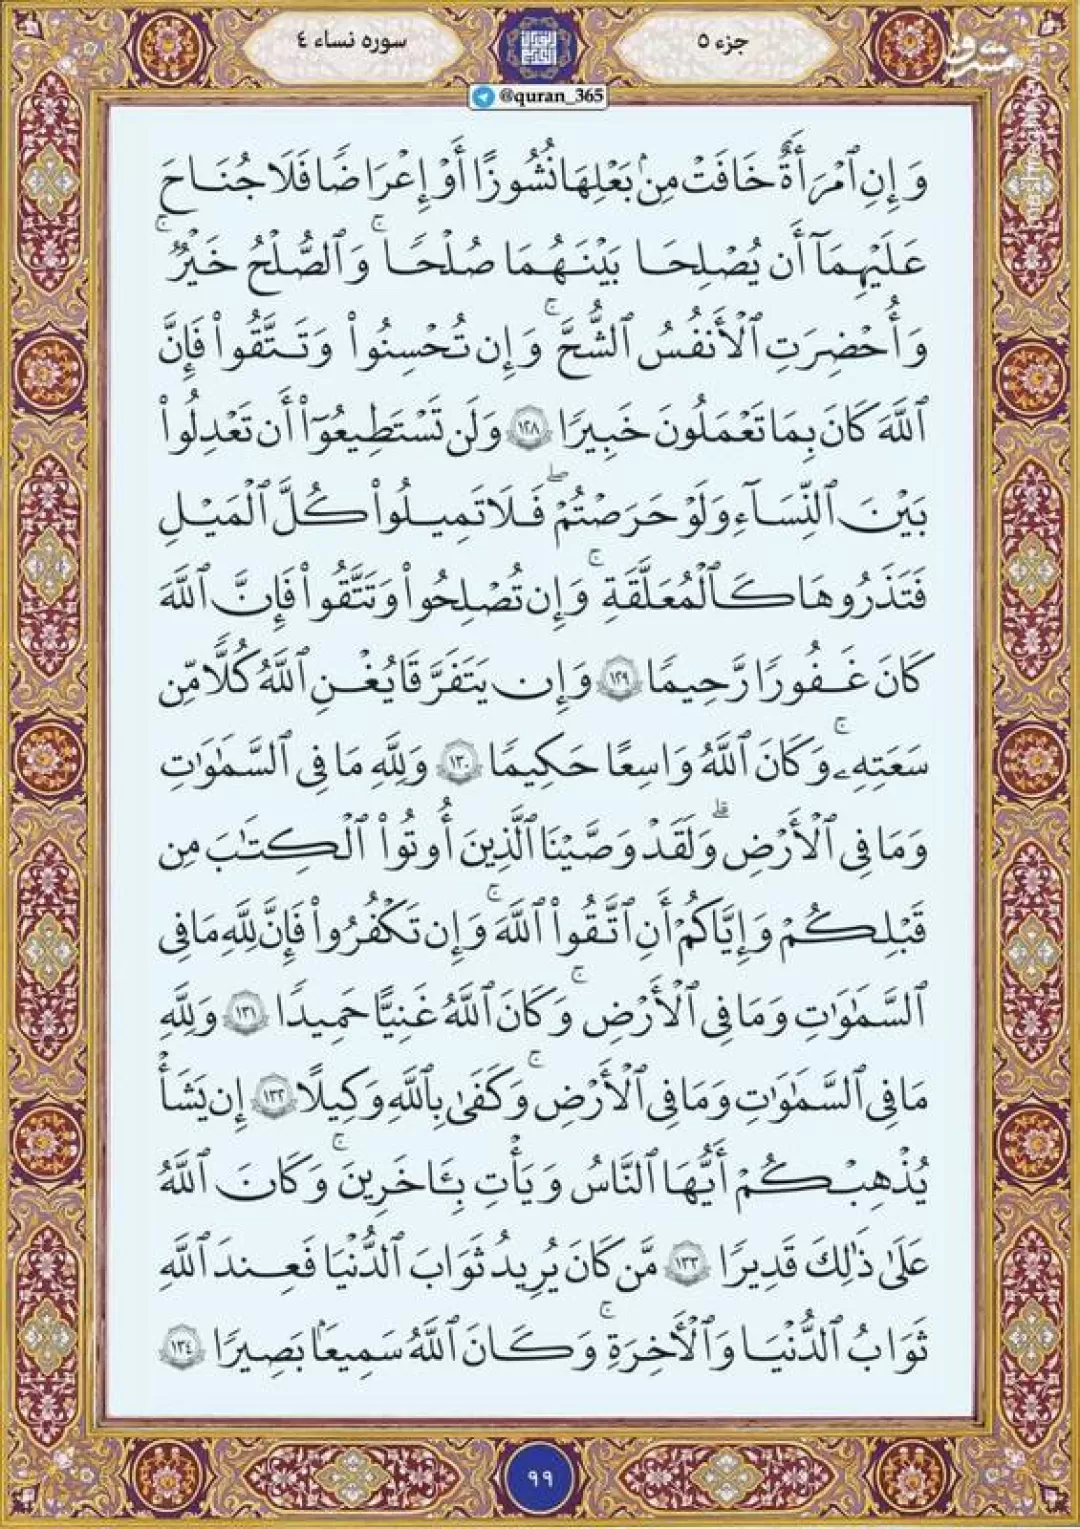 جزء ٥
سوره نساء ٤
@quran_365
مشرق
mashreghnews.ir
وَإِنِ ٱمْرَأَةٌ خَافَتْ مِنۢ بَعْلِهَا نُشُوزًا أَوْ إِعْرَاضًا فَلَا جُنَاحَ
عَلَيْهِمَآ أَن يُصْلِحَا بَيْنَهُمَا صُلْحًا ۚ وَٱلصُّلْحُ خَيْرٌ ۗ
وَأُحْضِرَتِ ٱلْأَنفُسُ ٱلشُّحَّ ۚ وَإِن تُحْسِنُوا۟ وَتَتَّقُوا۟ فَإِنَّ
ٱللَّهَ كَانَ بِمَا تَعْمَلُونَ خَبِيرًا ١٢٨ وَلَن تَسْتَطِيعُوٓا۟ أَن تَعْدِلُوا۟
بَيْنَ ٱلنِّسَآءِ وَلَوْ حَرَصْتُمْ ۖ فَلَا تَمِيلُوا۟ كُلَّ ٱلْمَيْلِ
فَتَذَرُوهَا كَٱلْمُعَلَّقَةِ ۚ وَإِن تُصْلِحُوا۟ وَتَتَّقُوا۟ فَإِنَّ ٱللَّهَ
كَانَ غَفُورًا رَّحِيمًا ١٢٩ وَإِن يَتَفَرَّقَا يُغْنِ ٱللَّهُ كُلًّا مِّن
سَعَتِهِۦ ۚ وَكَانَ ٱللَّهُ وَٰسِعًا حَكِيمًا ١٣٠ وَلِلَّهِ مَا فِى ٱلسَّمَٰوَٰتِ
وَمَا فِى ٱلْأَرْضِ ۗ وَلَقَدْ وَصَّيْنَا ٱلَّذِينَ أُوتُوا۟ ٱلْكِتَٰبَ مِن
قَبْلِكُمْ وَإِيَّاكُمْ أَنِ ٱتَّقُوا۟ ٱللَّهَ ۚ وَإِن تَكْفُرُوا۟ فَإِنَّ لِلَّهِ مَا فِى
ٱلسَّمَٰوَٰتِ وَمَا فِى ٱلْأَرْضِ ۚ وَكَانَ ٱللَّهُ غَنِيًّا حَمِيدًا ١٣١ وَلِلَّهِ
مَا فِى ٱلسَّمَٰوَٰتِ وَمَا فِى ٱلْأَرْضِ ۚ وَكَفَىٰ بِٱللَّهِ وَكِيلًا ١٣٢ إِن يَشَأْ
يُذْهِبْكُمْ أَيُّهَا ٱلنَّاسُ وَيَأْتِ بِـَٔاخَرِينَ ۚ وَكَانَ ٱللَّهُ
عَلَىٰ ذَٰلِكَ قَدِيرًا ١٣٣ مَّن كَانَ يُرِيدُ ثَوَابَ ٱلدُّنْيَا فَعِندَ ٱللَّهِ
ثَوَابُ ٱلدُّنْيَا وَٱلْأَخِرَةِ ۚ وَكَانَ ٱللَّهُ سَمِيعًۢا بَصِيرًا ١٣٤
٩٩